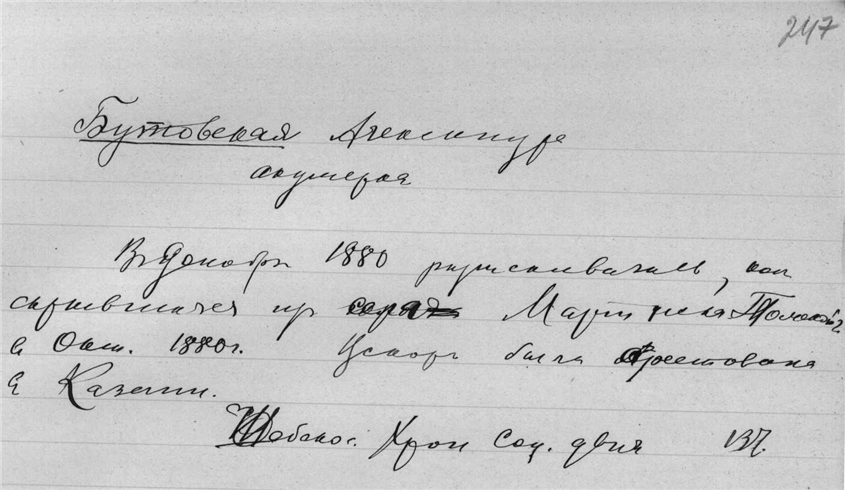 247
Бутовская Александра
акушерка
В Декабре 1880 разыскивалась, как
скрывшаяся из Мартинска
в Окт. 1880 г. Вскоре была арестована
в Казани.
Хрон соц. движ 137.